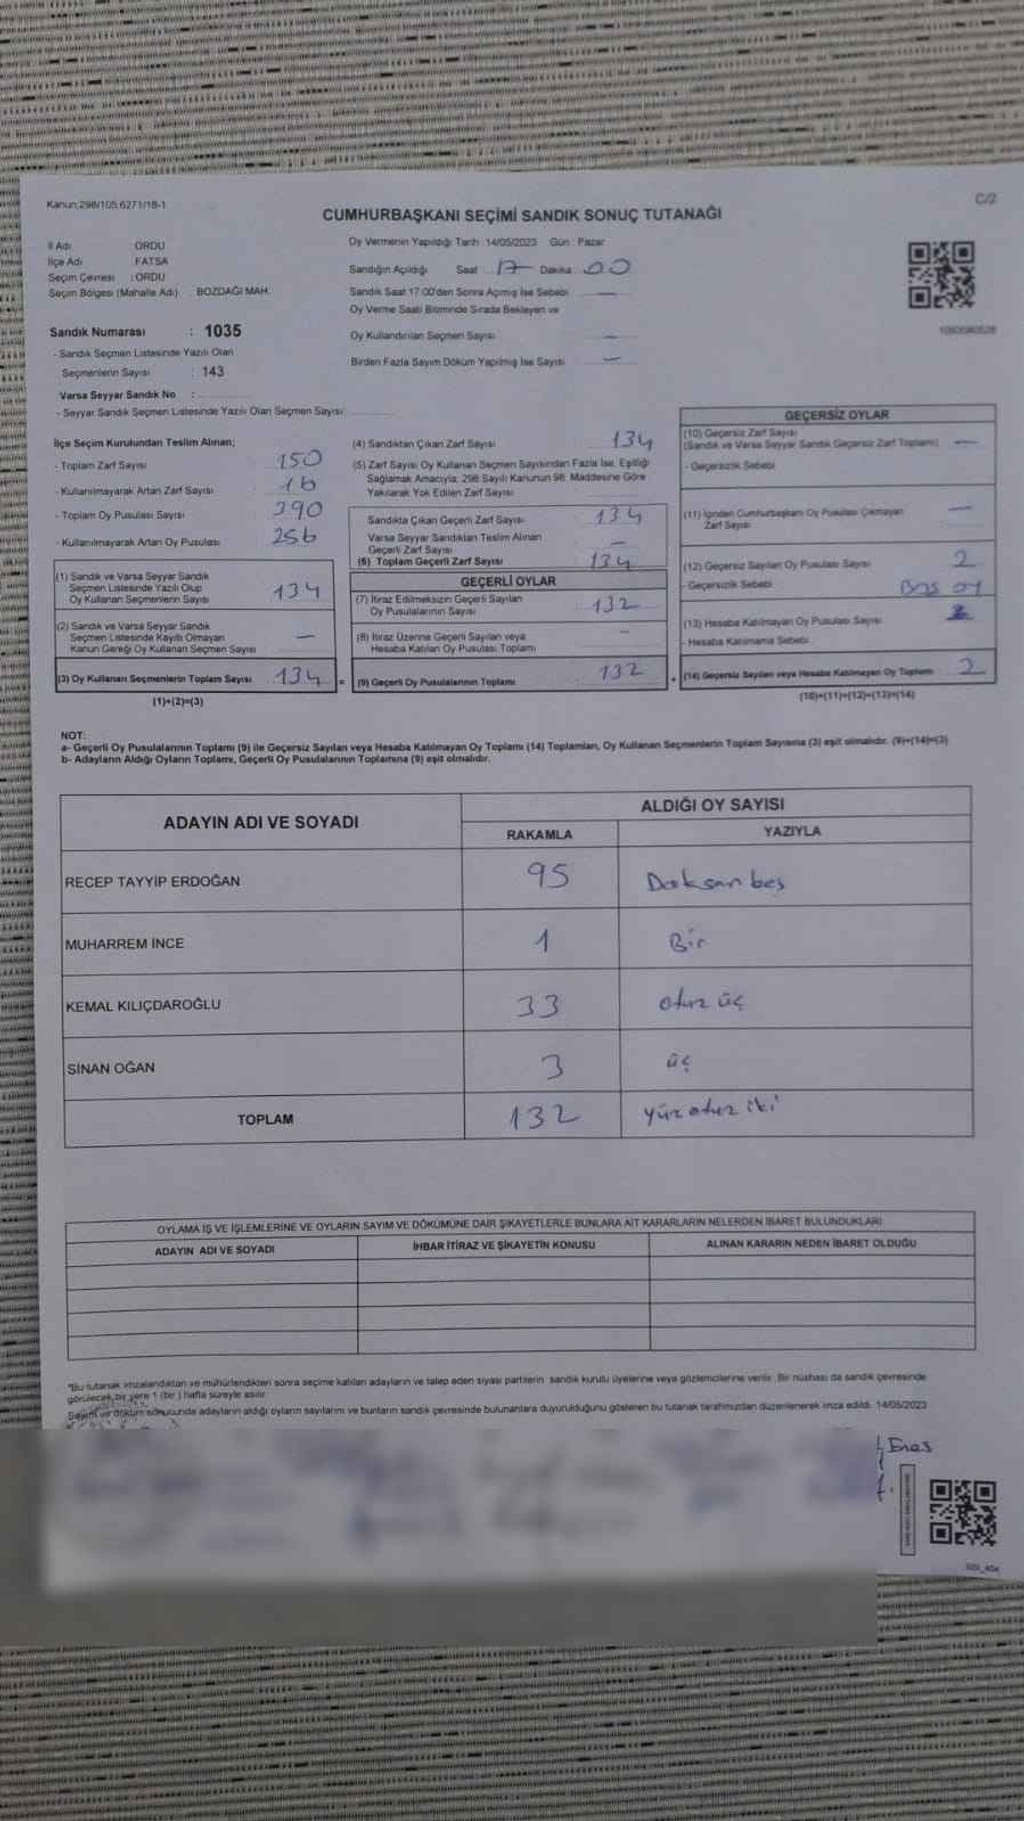 Kanun:298/105,6271/18-1
C/2
CUMHURBAŞKANI SEÇİMİ SANDIK SONUÇ TUTANAĞI
İl Adı : ORDU
İlçe Adı : FATSA
Seçim Çevresi : ORDU
Seçim Bölgesi (Mahalle Adı) : BOZDAĞI MAH.
Sandık Numarası : 1035
- Sandık Seçmen Listesinde Yazılı Olan
Seçmenlerin Sayısı : 143
Varsa Seyyar Sandık No :
- Seyyar Sandık Seçmen Listesinde Yazılı Olan Seçmen Sayısı:
Oy Vermenin Yapıldığı Tarih : 14/05/2023 Gün : Pazar
Sandığın Açıldığı Saat 17 Dakika 00
Sandık Saat 17:00'den Sonra Açılmış İse Sebebi —
Oy Verme Saati Bitiminde Sırada Bekleyen ve
Oy Kullandırılan Seçmen Sayısı —
Birden Fazla Sayım Döküm Yapılmış İse Sayısı —
İlçe Seçim Kurulundan Teslim Alınan;
- Toplam Zarf Sayısı 150
- Kullanılmayarak Artan Zarf Sayısı 16
- Toplam Oy Pusulası Sayısı 390
- Kullanılmayarak Artan Oy Pusulası 256
(1) Sandık ve Varsa Seyyar Sandık
Seçmen Listesinde Yazılı Olup
Oy Kullanan Seçmenlerin Sayısı 134
(2) Sandık ve Varsa Seyyar Sandık
Seçmen Listesinde Kayıtlı Olmayan
Kanun Gereği Oy Kullanan Seçmen Sayısı —
(3) Oy Kullanan Seçmenlerin Toplam Sayısı 134
(1)+(2)=(3)
(4) Sandıktan Çıkan Zarf Sayısı 134
(5) Zarf Sayısı Oy Kullanan Seçmen Sayısından Fazla İse, Eşitliği
Sağlamak Amacıyla; 298 Sayılı Kanunun 98. Maddesine Göre
Yakılarak Yok Edilen Zarf Sayısı
Sandıkta Çıkan Geçerli Zarf Sayısı 134
Varsa Seyyar Sandıktan Teslim Alınan
Geçerli Zarf Sayısı —
(6) Toplam Geçerli Zarf Sayısı 134
GEÇERLİ OYLAR
(7) İtiraz Edilmeksizin Geçerli Sayılan
Oy Pusulalarının Sayısı 132
(8) İtiraz Üzerine Geçerli Sayılan veya
Hesaba Katılan Oy Pusulası Toplamı —
= (9) Geçerli Oy Pusulalarının Toplamı 132
GEÇERSİZ OYLAR
(10) Geçersiz Zarf Sayısı
(Sandık ve Varsa Seyyar Sandık Geçersiz Zarf Toplamı) —
- Geçersizlik Sebebi
(11) İçinden Cumhurbaşkanı Oy Pusulası Çıkmayan
Zarf Sayısı —
(12) Geçersiz Sayılan Oy Pusulası Sayısı 2
- Geçersizlik Sebebi Boş oy
(13) Hesaba Katılmayan Oy Pusulası Sayısı
- Hesaba Katılmama Sebebi
+ (14) Geçersiz Sayılan veya Hesaba Katılmayan Oy Toplamı 2
(10)+(11)+(12)+(13)=(14)
NOT:
a- Geçerli Oy Pusulalarının Toplamı (9) ile Geçersiz Sayılan veya Hesaba Katılmayan Oy Toplamı (14) Toplamları, Oy Kullanan Seçmenlerin Toplam Sayısına (3) eşit olmalıdır. (9)+(14)=(3)
b- Adayların Aldığı Oyların Toplamı, Geçerli Oy Pusulalarının Toplamına (9) eşit olmalıdır.
ADAYIN ADI VE SOYADI
ALDIĞI OY SAYISI
RAKAMLA YAZIYLA
RECEP TAYYİP ERDOĞAN 95 Doksan beş
MUHARREM İNCE 1 Bir
KEMAL KILIÇDAROĞLU 33 otuz üç
SİNAN OĞAN 3 üç
TOPLAM 132 yüz otuz iki
OYLAMA İŞ VE İŞLEMLERİNE VE OYLARIN SAYIM VE DÖKÜMÜNE DAİR ŞİKAYETLERLE BUNLARA AİT KARARLARIN NELERDEN İBARET BULUNDUKLARI
ADAYIN ADI VE SOYADI İHBAR İTİRAZ VE ŞİKAYETİN KONUSU ALINAN KARARIN NEDEN İBARET OLDUĞU
"Bu tutanak imzalandıktan ve mühürlendikten sonra seçime katılan adayların ve talep eden siyasi partilerin sandık kurulu üyelerine veya gözlemcilerine verilir. Bir nüshası da sandık çevresinde
görülecek bir yere 1 (bir ) hafta süreyle asılır.
Sayım ve döküm sonucunda adayların aldığı oyların sayılarını ve bunların sandık çevresinde bulunanlara duyurulduğunu gösteren bu tutanak tarafımızdan düzenlenerek imza edildi. 14/05/2023
Enes